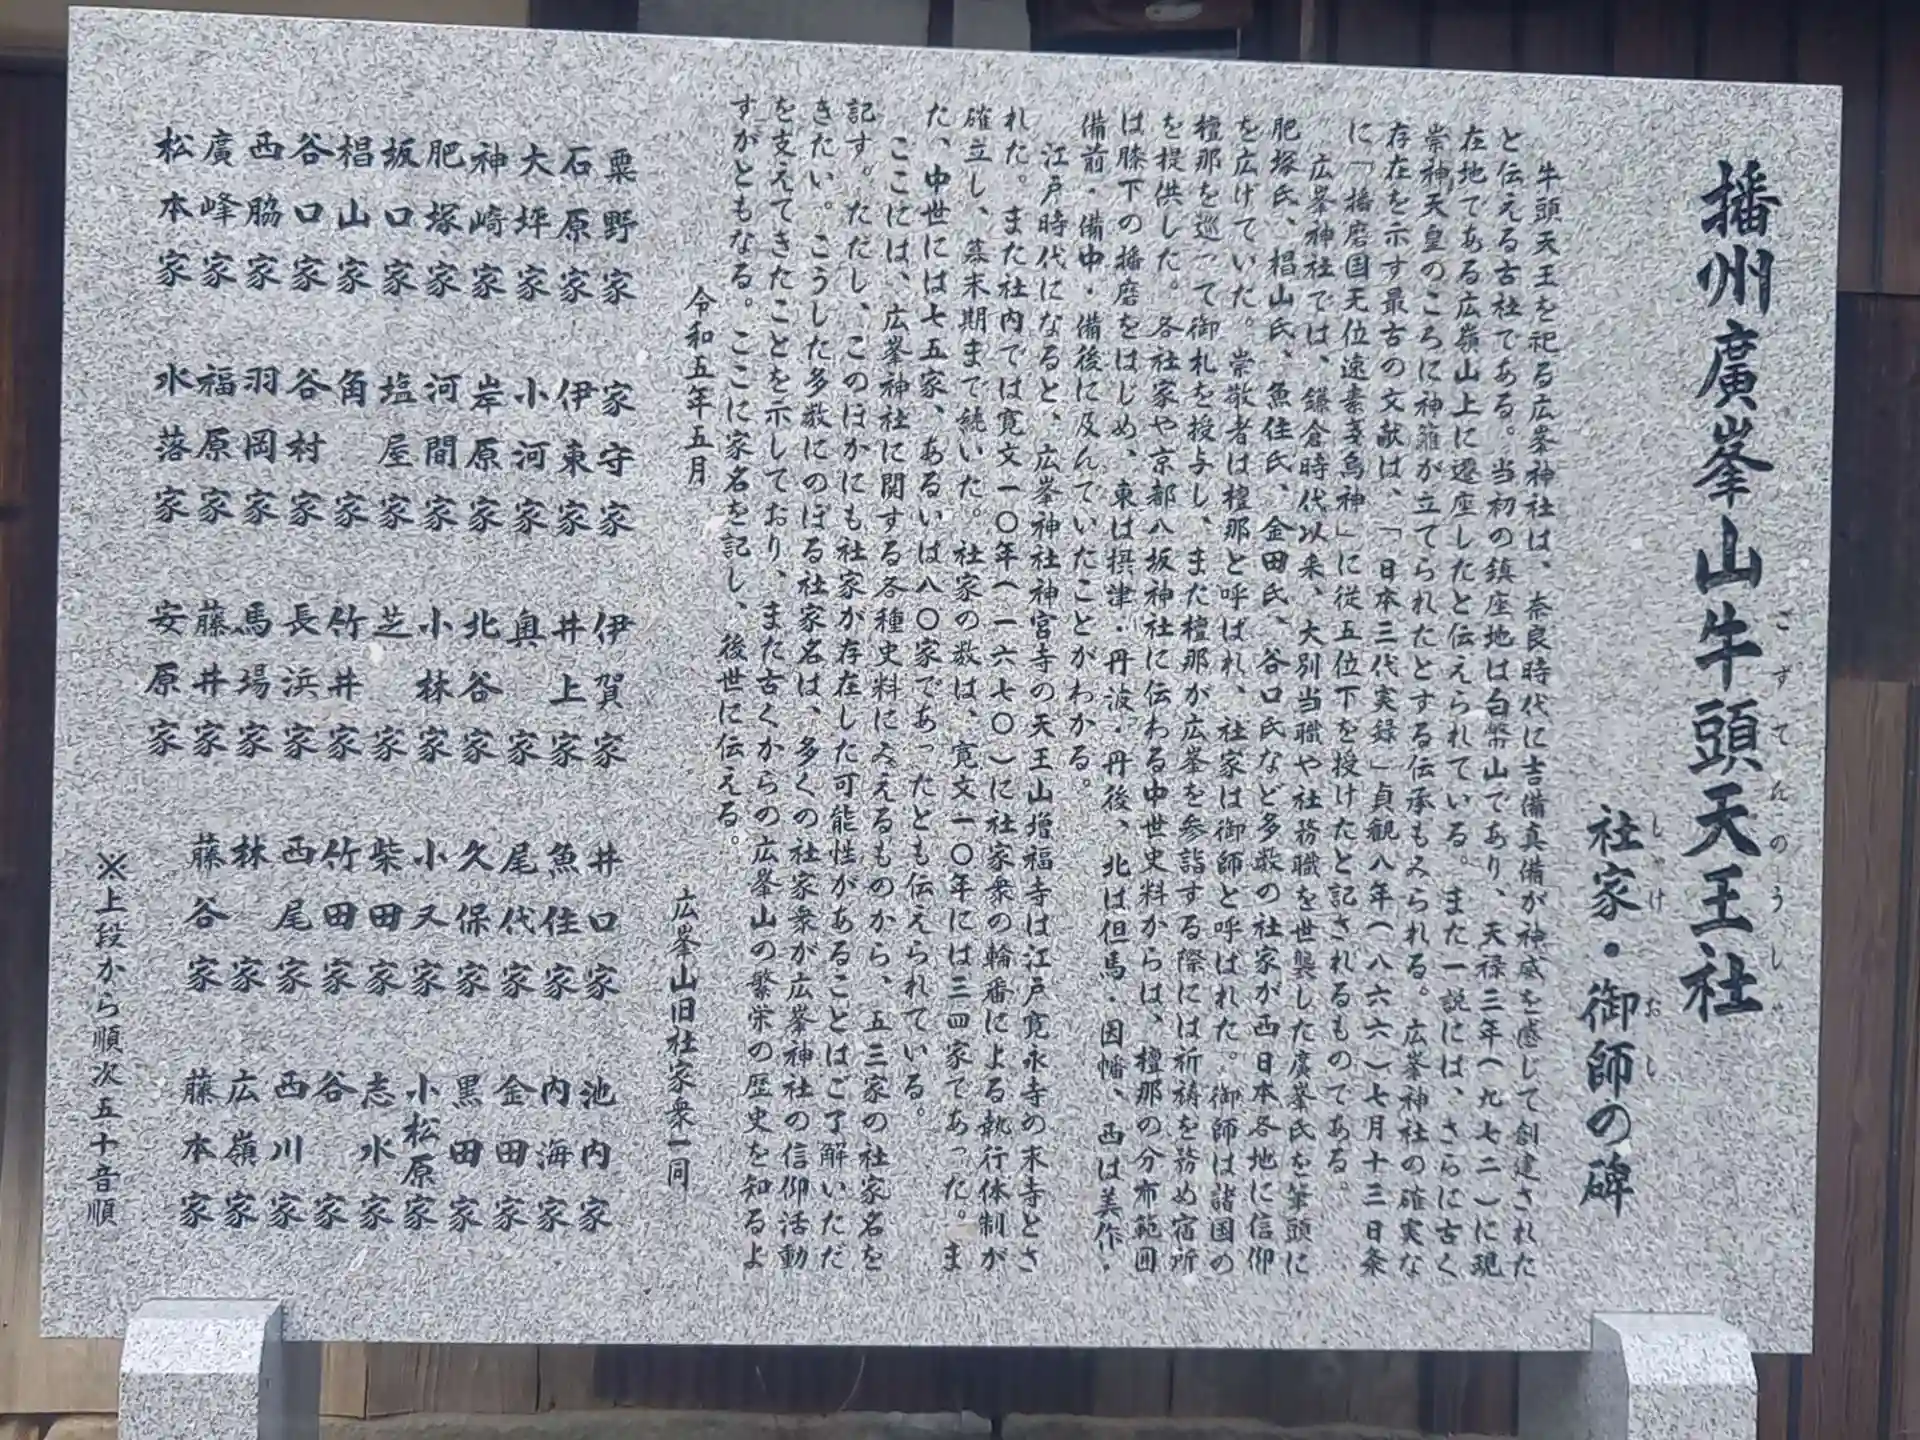 播州廣峯山牛頭天王社
ごずてんのうしゃ
社家・御師の碑
しゃけ おし
牛頭天王を祀る広峯神社は、奈良時代に吉備真備が神威を感じて創建された
と伝える古社である。当初の鎮座地は白幣山であり、天禄三年(九七二)に現
在地である広嶺山上に遷座したと伝えられている。また一説には、さらに古く
崇神天皇のころに神籬が立てられたとする伝承もみられる。広峯神社の確実な
存在を示す最古の文献は、「日本三代実録」貞観八年(八六六)七月十三日条
に「播磨国无位速素戔烏神」に従五位下を授けたと記されるものである。
広峯神社では、鎌倉時代以来、大別当職や社務職を世襲した廣峯氏を筆頭に
肥塚氏、椙山氏、魚住氏、金田氏、谷口氏など多数の社家が西日本各地に信仰
を広げていた。崇敬者は檀那と呼ばれ、社家は御師と呼ばれた。御師は諸国の
檀那を巡って御札を授与し、また檀那が広峯を参詣する際には祈祷を務め宿所
を提供した。各社家や京都八坂神社に伝わる中世史料からは、檀那の分布範囲
は膝下の播磨をはじめ、東は摂津・丹波・丹後、北は但馬・因幡、西は美作・
備前・備中・備後に及んでいたことがわかる。
江戸時代になると、広峯神社神宮寺の天王山増福寺は江戸寛永寺の末寺とさ
れた。また社内では寛文一〇年(一六七〇)に社家衆の輪番による執行体制が
確立し、幕末期まで続いた。社家の数は、寛文一〇年には三四家であった。ま
た、中世には七五家、あるいは八〇家であったとも伝えられている。
ここには、広峯神社に関する各種史料にみえるものから、五三家の社家名を
記す。ただし、このほかにも社家が存在した可能性があることはご了解いただ
きたい。こうした多数にのぼる社家名は、多くの社家衆が広峯神社の信仰活動
を支えてきたことを示しており、また古くからの広峯山の繁栄の歴史を知るよ
すがともなる。ここに家名を記し、後世に伝える。
令和五年五月
広峯山旧社家衆一同
粟野家 石原家 大坪家 神崎家 肥塚家 坂口家 椙山家 谷口家 西脇家 廣峰家 松本家
家守家 伊東家 小河家 岸原家 河間家 塩屋家 角家 谷村家 羽岡家 福原家 水落家
伊賀家 井上家 奥家 北谷家 小林家 芝家 竹井家 長浜家 馬場家 藤井家 安原家
井口家 魚住家 尾代家 久保家 小又家 柴田家 竹田家 西尾家 林家 藤谷家
池内家 内海家 金田家 黒田家 小松原家 志水家 谷家 西川家 広嶺家 藤本家
※上段から順次五十音順